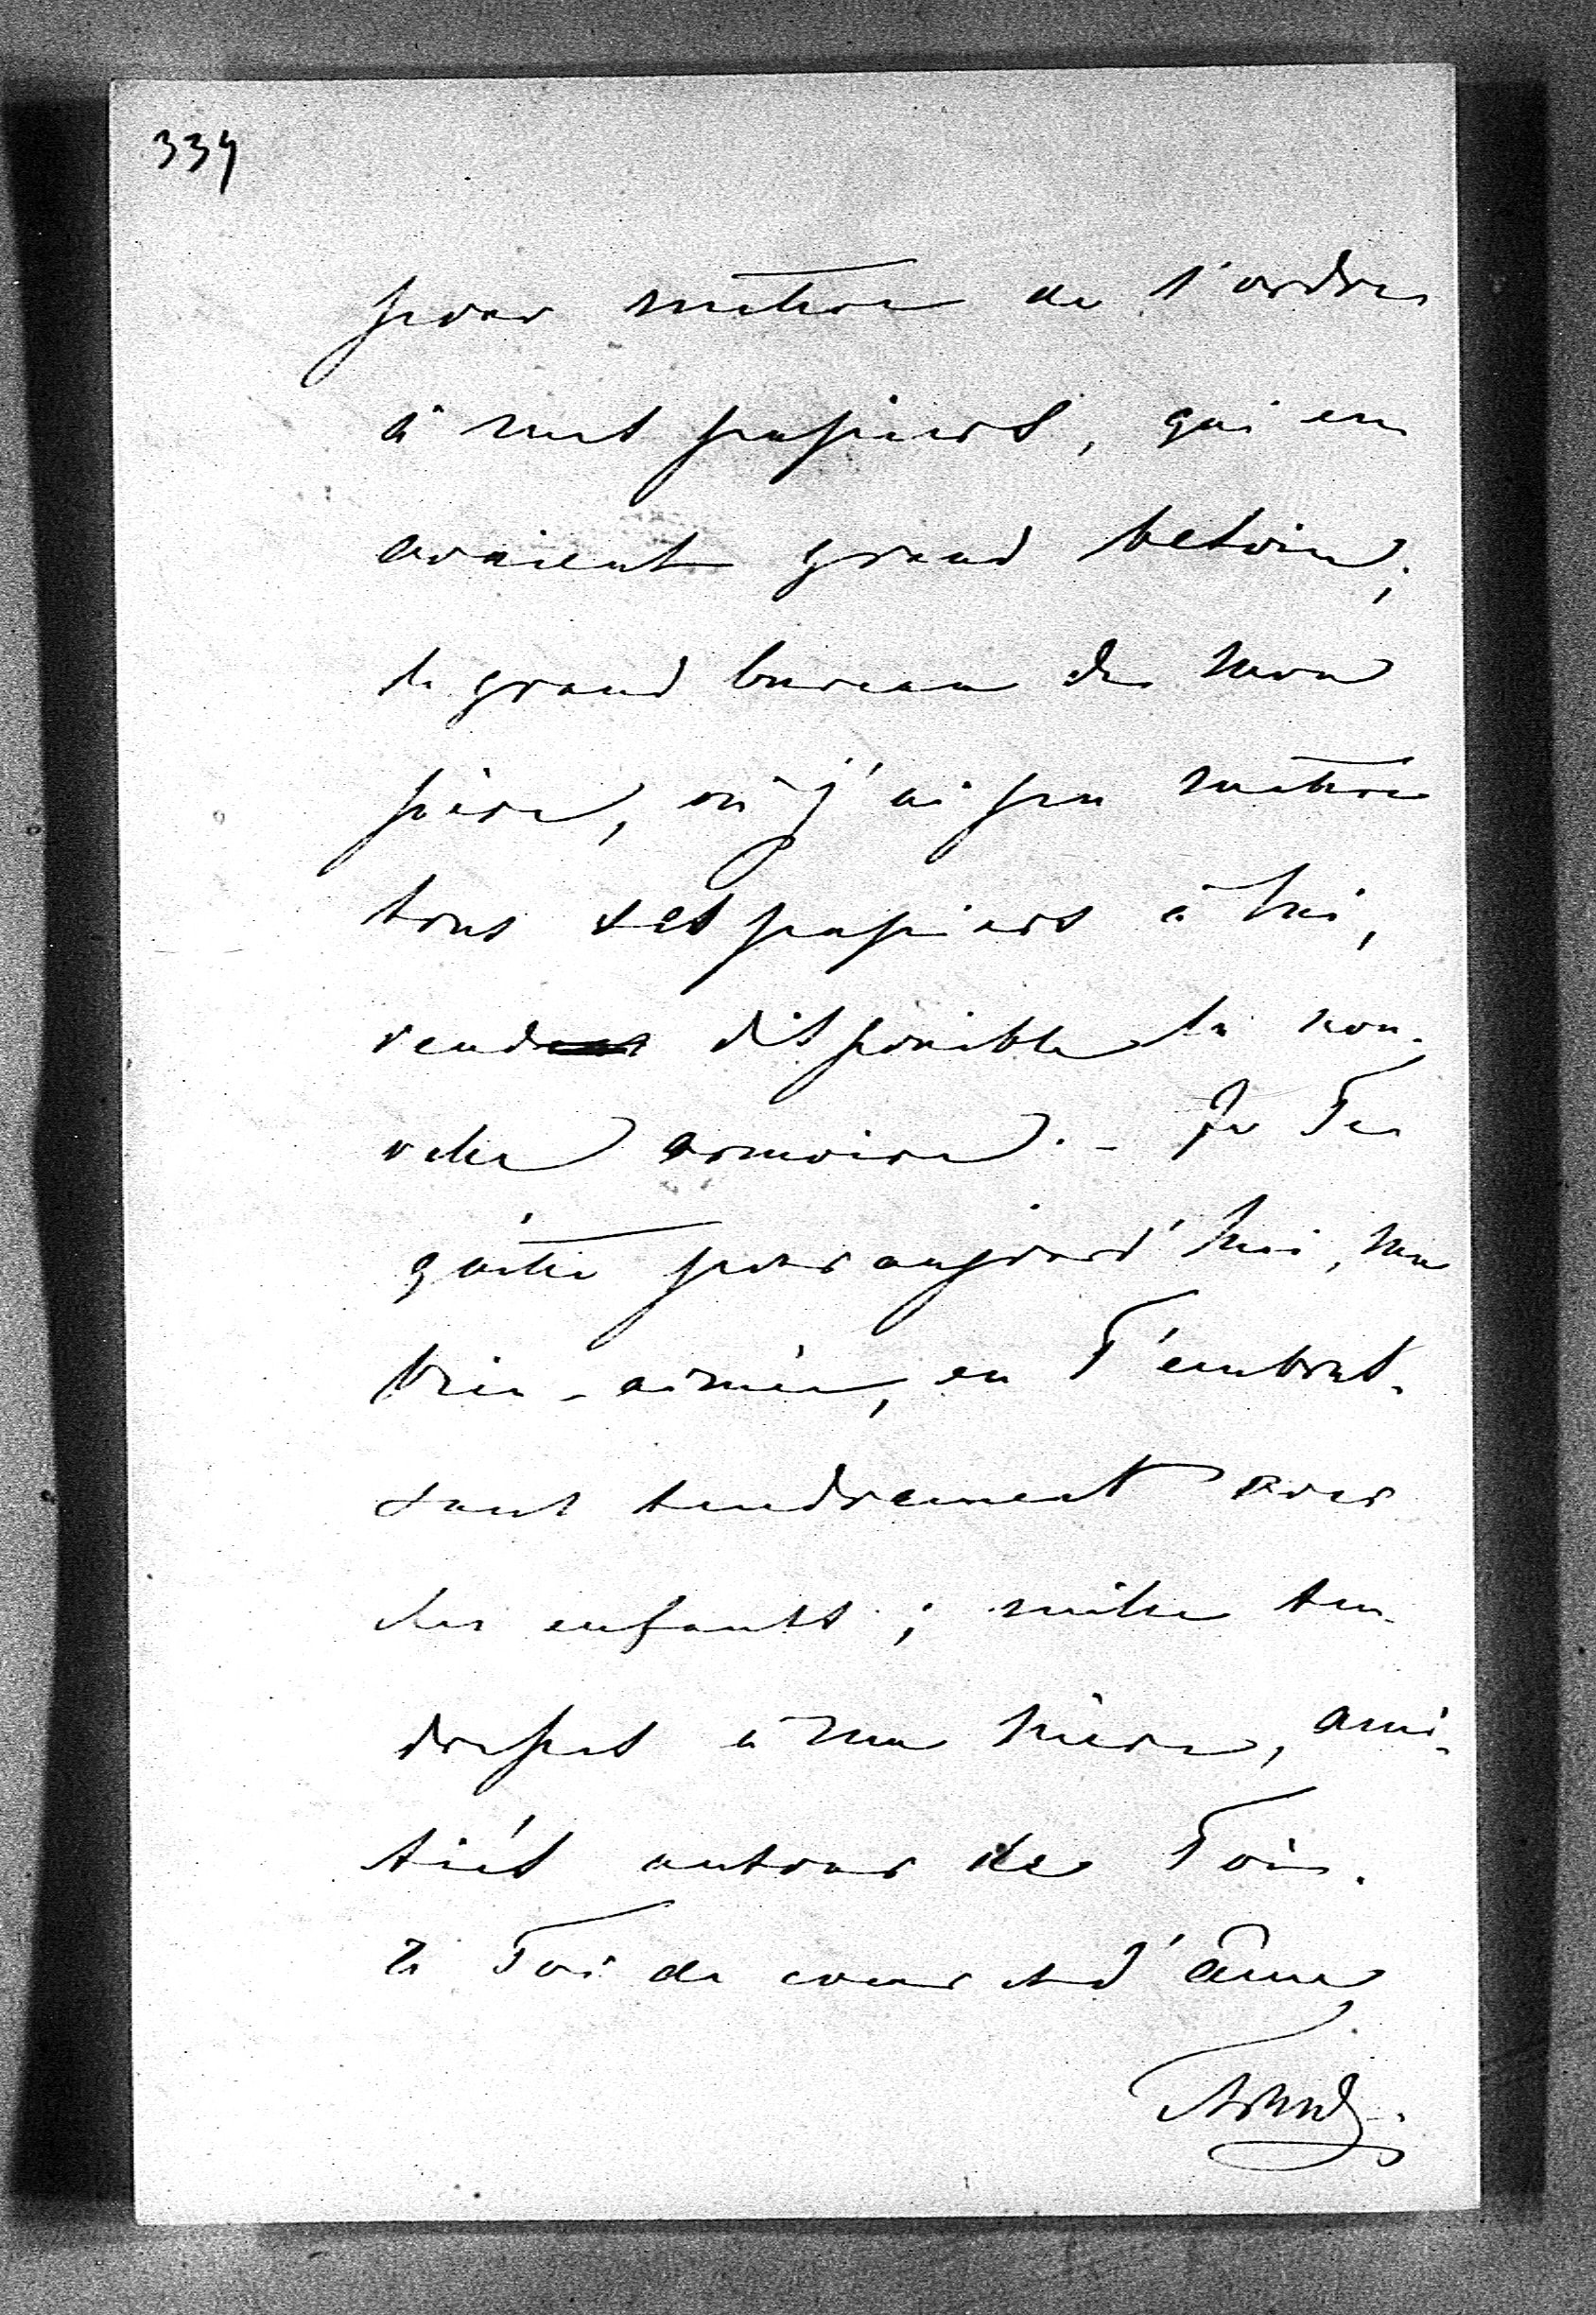 339
pour mettre de l'ordre
à mes papiers, qui en
avaient grand besoin;
le grand bureau de mon
père, où j'ai pu mettre
tous ses papiers à lui,
rend disponible la nou-
velle armoire. - Je Te
quitte pour aujourd'hui, ma
bien-aimée, en T'embras-
sant tendrement avec
les enfants; mille ten-
dresses à ma mère, ami-
tiés autour de Toi.
à Toi de cœur et d'âme